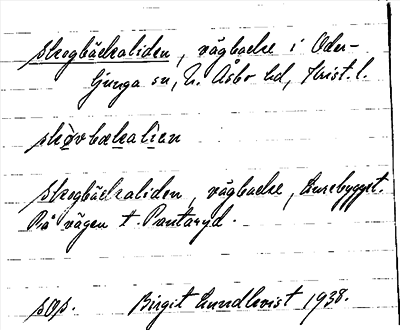 skogbäckaliden, vägbacke i Oder-
ljunga sn, N. Åsbo hd, Krist. l.
skovbækalien
skogbäckaliden, vägbacke,
På vägen t. Pantaryd.
sop. Birgit Lundkvist 1938.